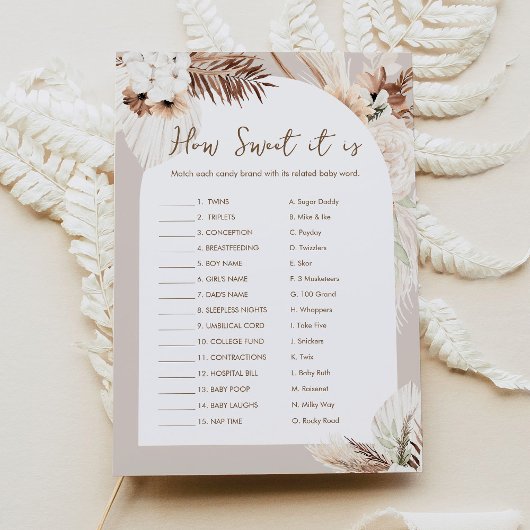 How Sweet it is
Match each candy brand with its related baby word.
1. TWINS A. Sugar Daddy
2. TRIPLETS B. Mike & Ike
3. CONCEPTION C. Payday
4. BREASTFEEDING D. Twizzlers
5. BOY NAME E. Skor
6. GIRL'S NAME F. 3 Musketeers
7. DAD'S NAME G. 100 Grand
8. SLEEPLESS NIGHTS H. Whoppers
9. UMBILICAL CORD I. Take Five
10. COLLEGE FUND J. Snickers
11. CONTRACTIONS K. Twix
12. HOSPITAL BILL L. Baby Ruth
13. BABY POOP M. Raisenet
14. BABY LAUGHS N. Milky Way
15. NAP TIME O. Rocky Road